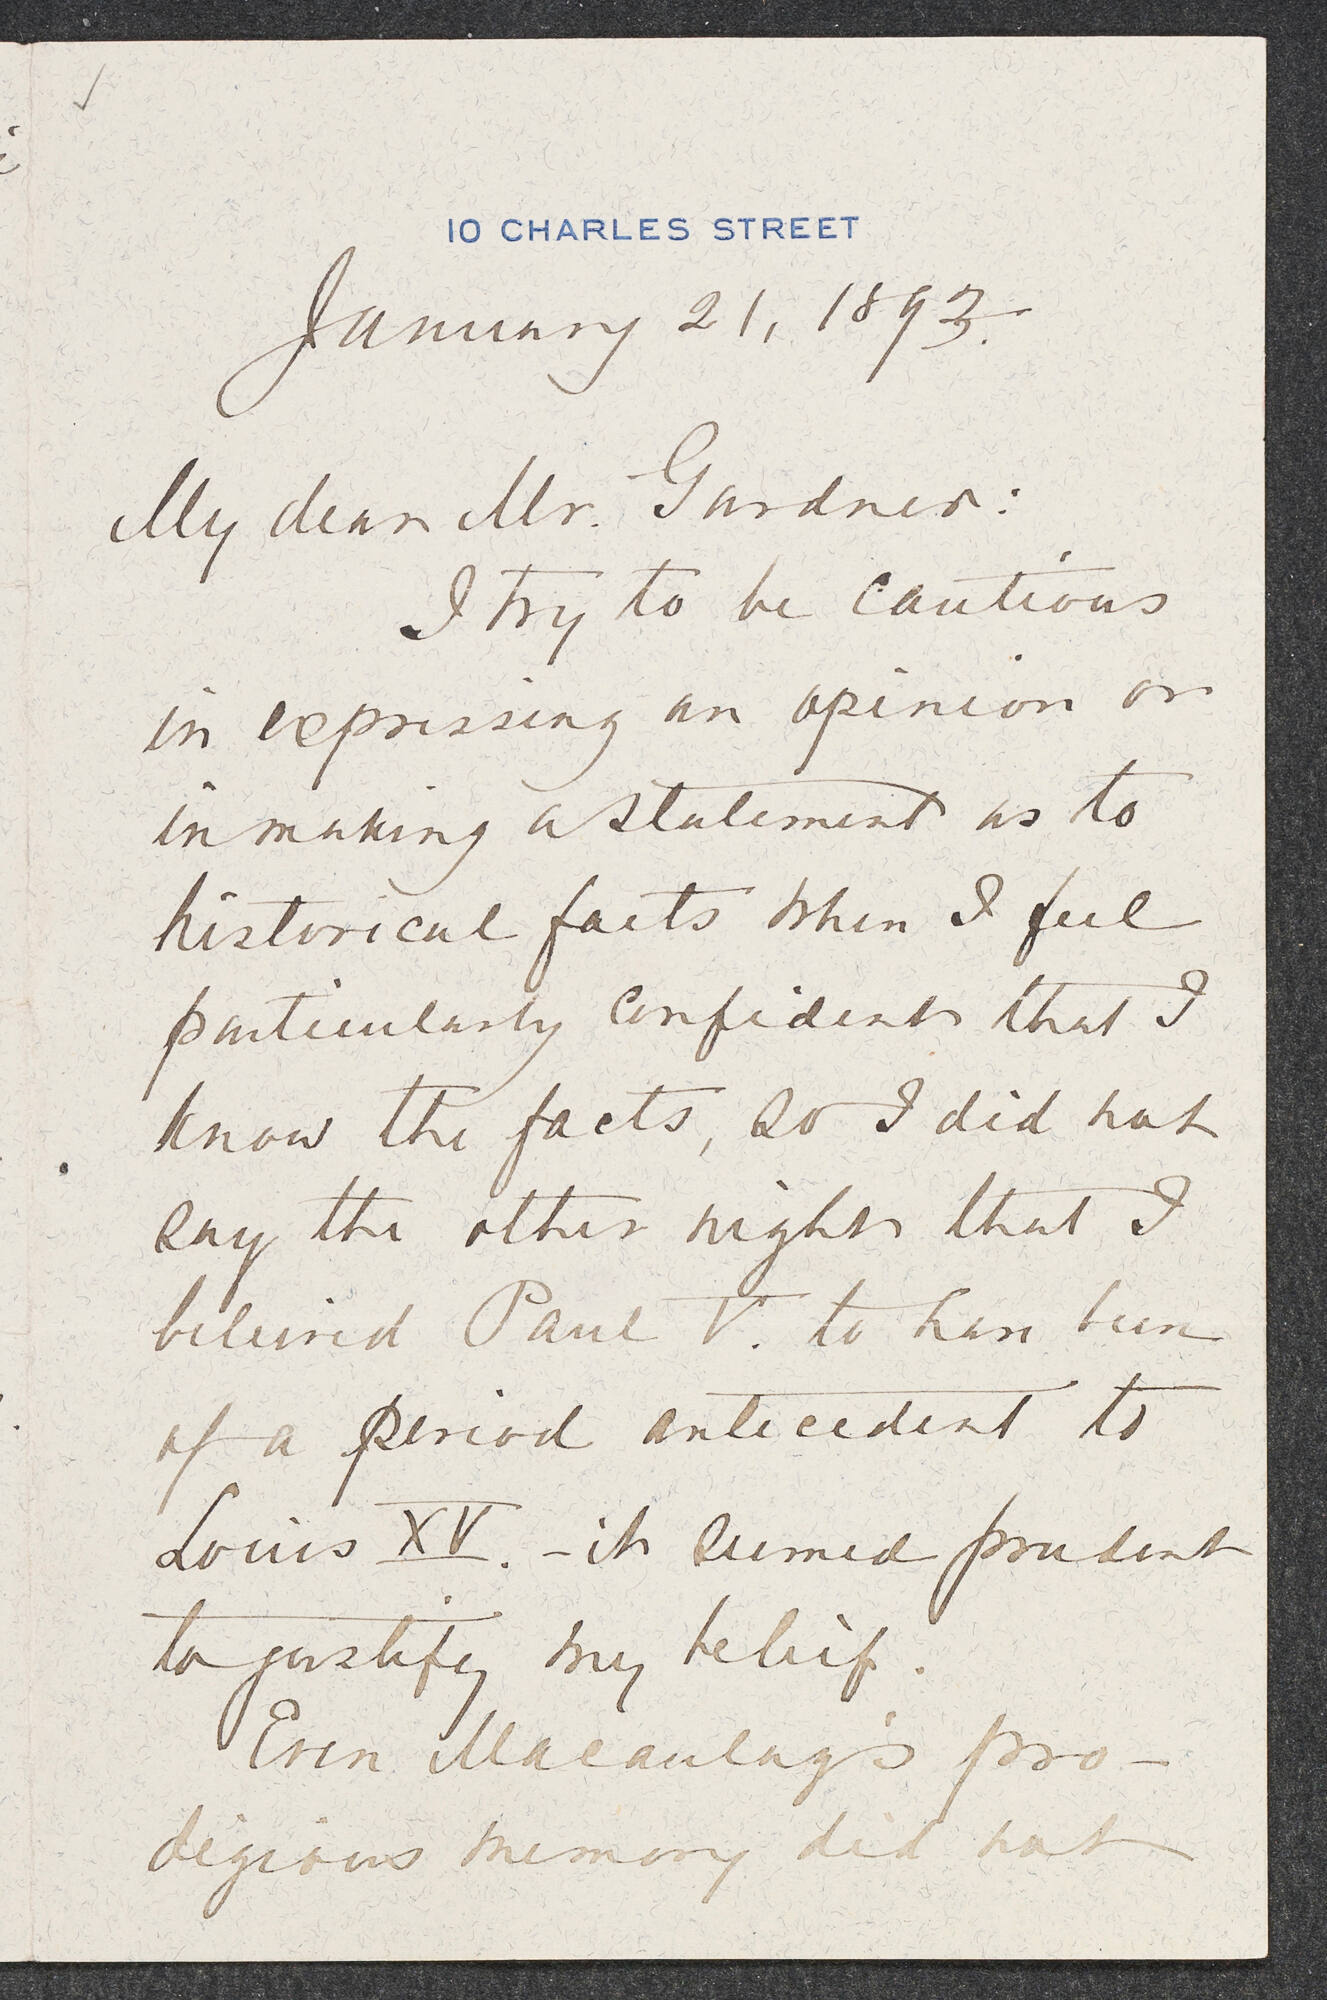 10 CHARLES STREET
January 21, 1893.
My dear Mr. Gardner:
I try to be cautious
in expressing an opinion or
in making a statement as to
historical facts when I feel
particularly confident that I
know the facts, so I did not
say the other night that I
beleived Paul V. to have been
of a period antecedent to
Louis XV. - it seemed prudent
to justify my belief.
Even Macaulay's pro-
digious memory did not